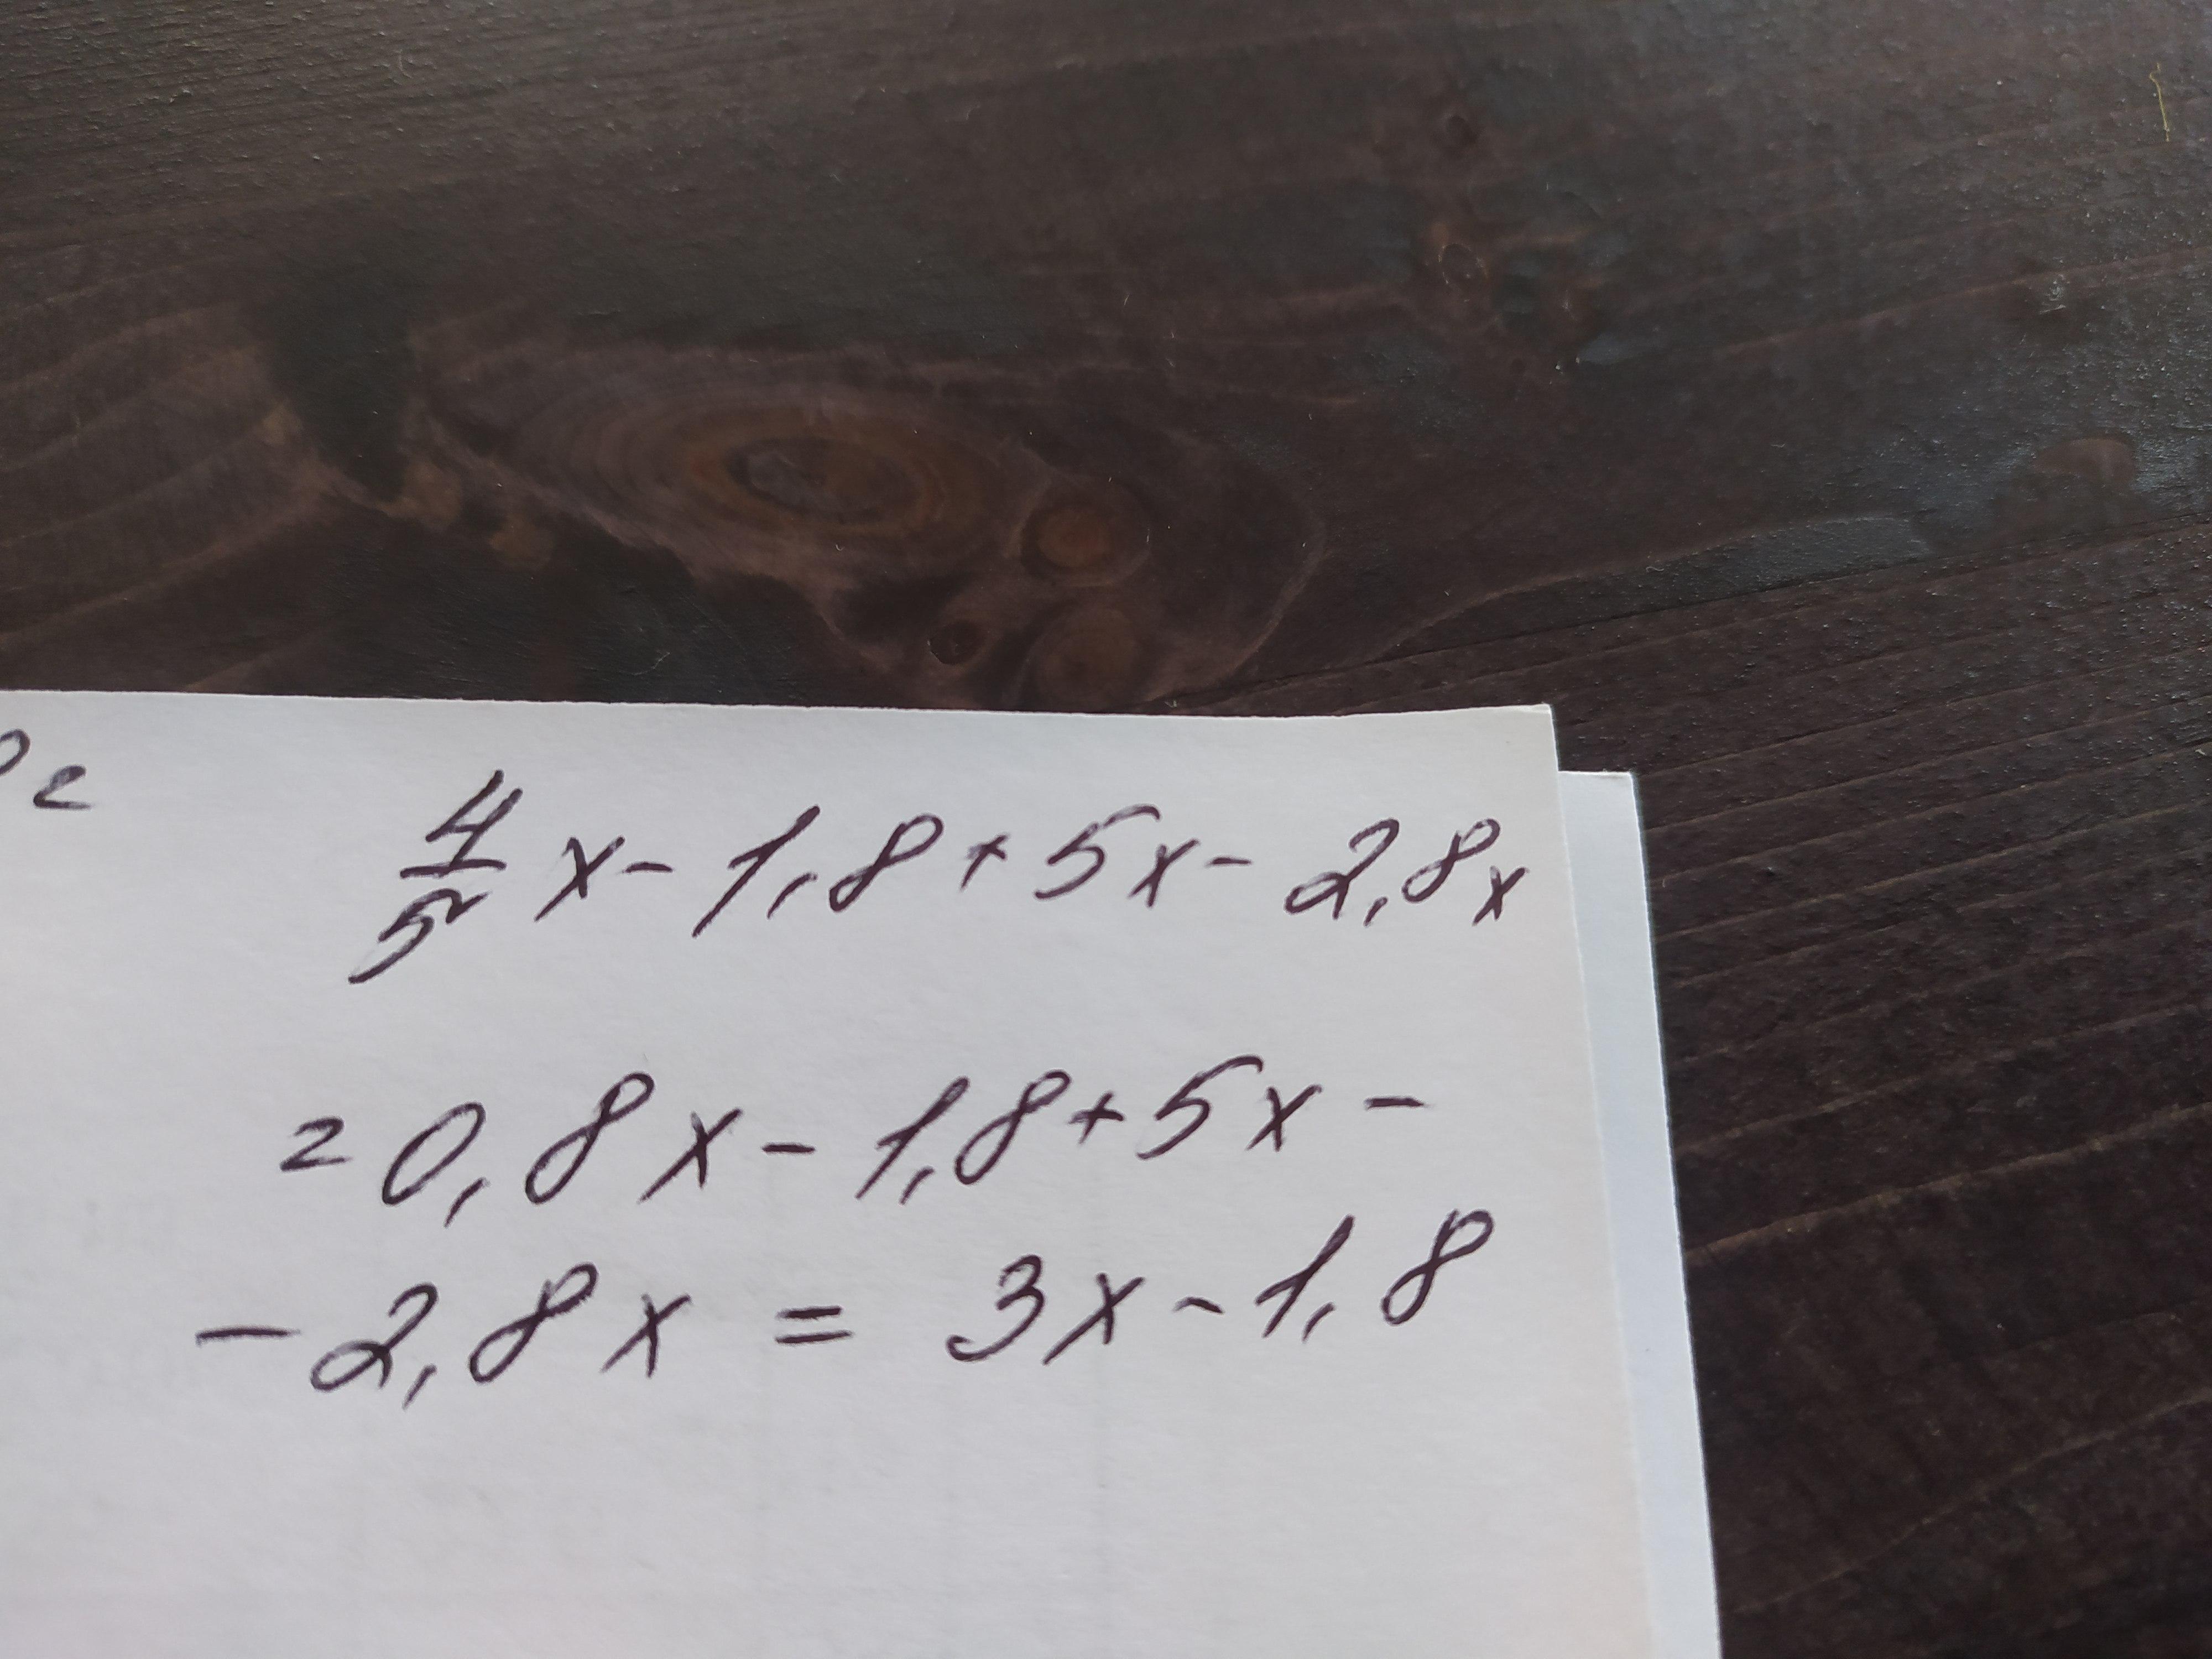 4/5 x - 1,8 + 5x - 2,8x
= 0,8x - 1,8 + 5x -
- 2,8x = 3x - 1,8